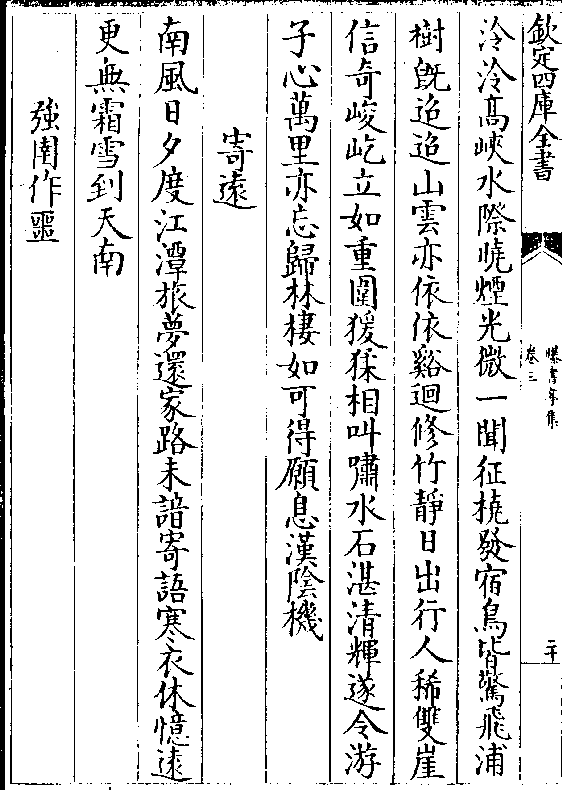 欽定四庫全書
曝書亭集
卷三
二十
泠泠高峽水際曉煙光微一聞征橈發宿鳥皆驚飛浦
樹旣迢迢山雲亦依依谿迴修竹靜日出行人稀雙崖
信奇峻屹立如重圍猨猱相叫嘯水石湛清輝遂令游
子心萬里亦忘歸林棲如可得願息漢陰機
寄遠
南風日夕度江潭旅夢還家路未諳寄語寒衣休憶遠
更無霜雪到天南
強圉作噩